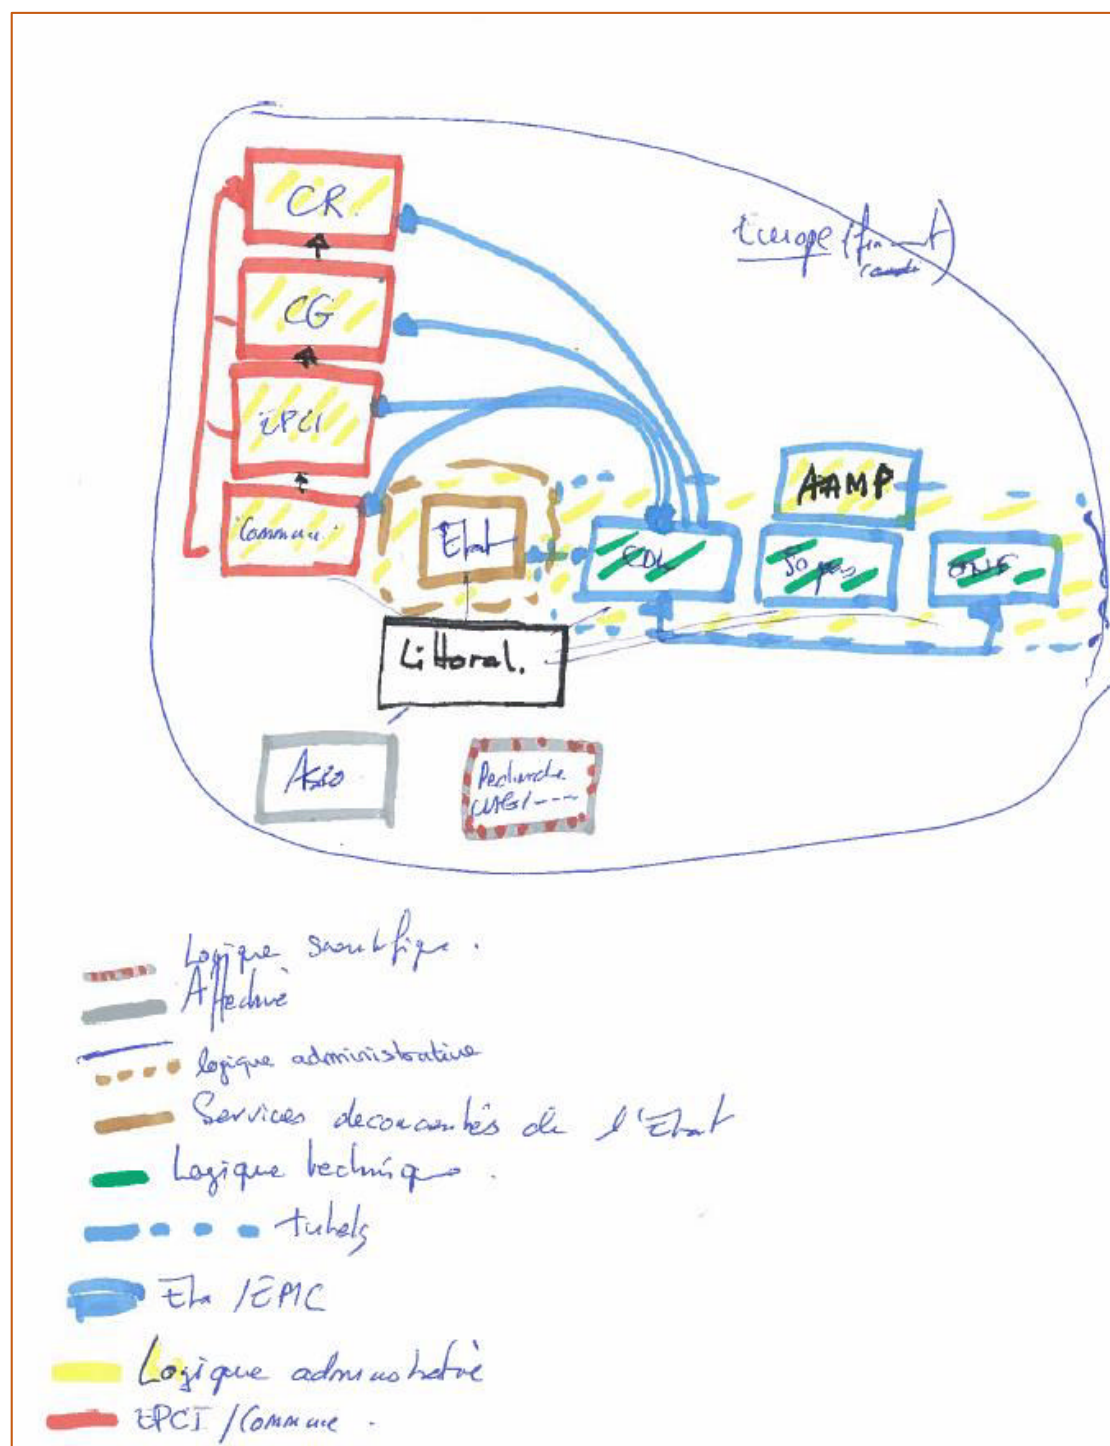 CR
Europe
CG
EPCI
AAMP
Commune
Etat
CDL
50 pas
ONF
Littoral.
Asso
Recherche
Logique scientifique.
Affective
logique administrative
Services deconcentrés de l'Etat
Logique technique.
tutels
Eta / EPIC
Logique administrative
EPCI / Commune.